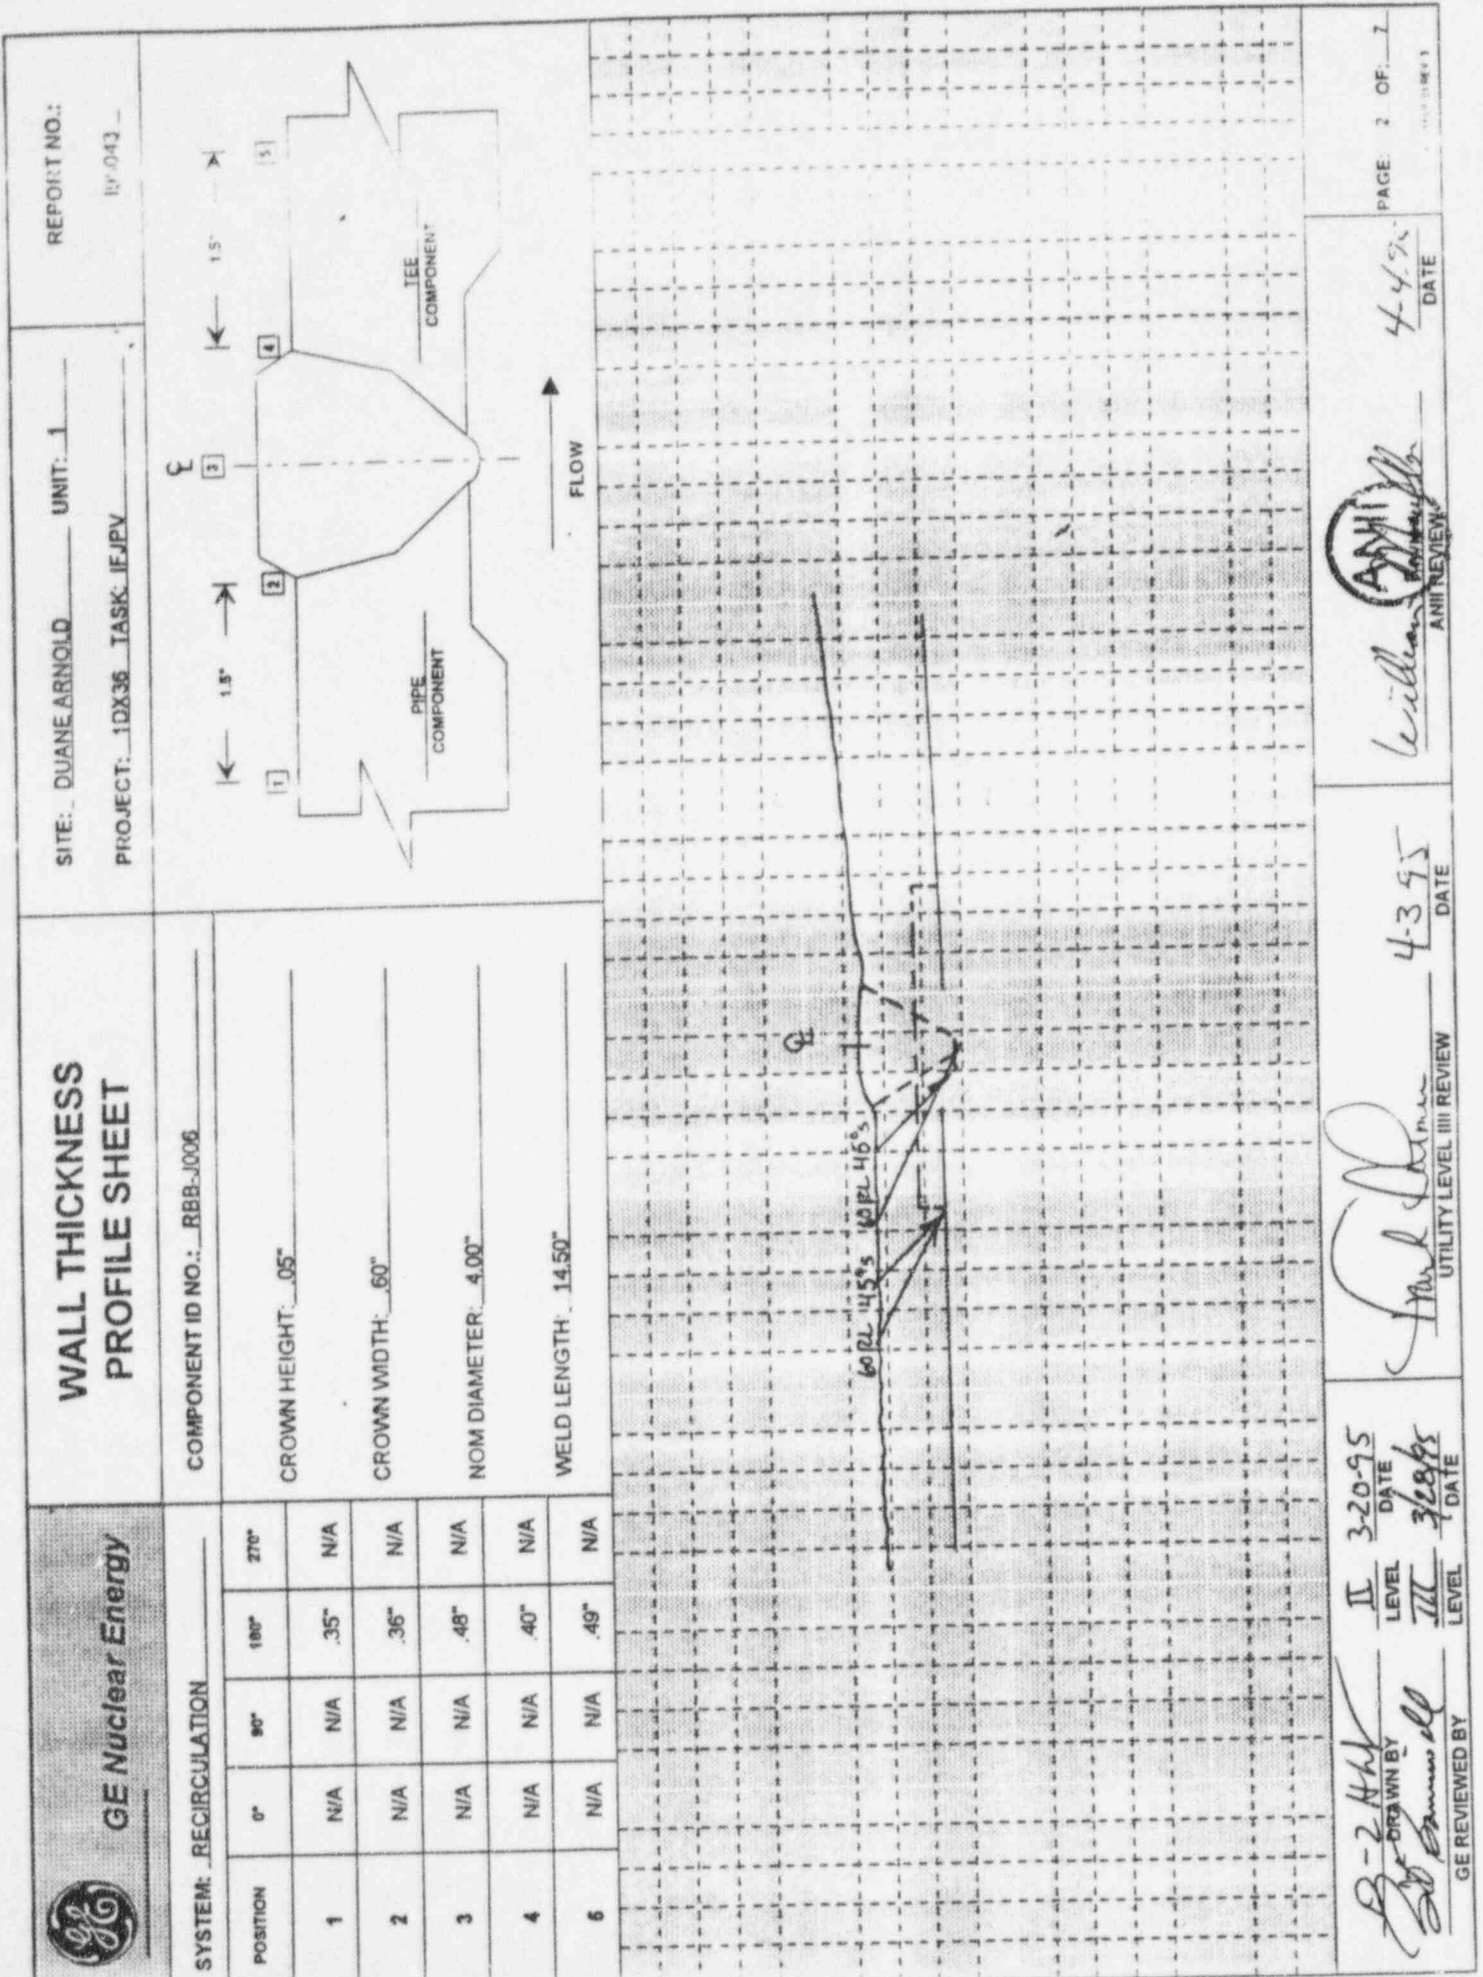 GE Nuclear Energy
WALL THICKNESS
PROFILE SHEET
SITE: DUANE ARNOLD UNIT: 1
PROJECT: 1DX36 TASK: IFJPV
REPORT NO.:
SYSTEM: RECIRCULATION
COMPONENT ID NO.: RBB-J006
POSITION 0° 90° 180° 270°
1 N/A N/A .35" N/A
2 N/A N/A .36" N/A
3 N/A N/A .48" N/A
4 N/A N/A .40" N/A
5 N/A N/A .49" N/A
CROWN HEIGHT: .05"
CROWN WIDTH: .60"
NOM DIAMETER: 4.00"
WELD LENGTH: 14.50"
1.5" 1.5"
1 2 3 4 5
PIPE
COMPONENT
TEE
COMPONENT
FLOW
60 RL 45°s 60 RL 45°s
II 3-20-95
DRAWN BY LEVEL DATE
III 3/28/95
GE REVIEWED BY LEVEL DATE
4-3-95
UTILITY LEVEL III REVIEW DATE
William
ANII
ANII REVIEW DATE
PAGE: 2 OF: 7